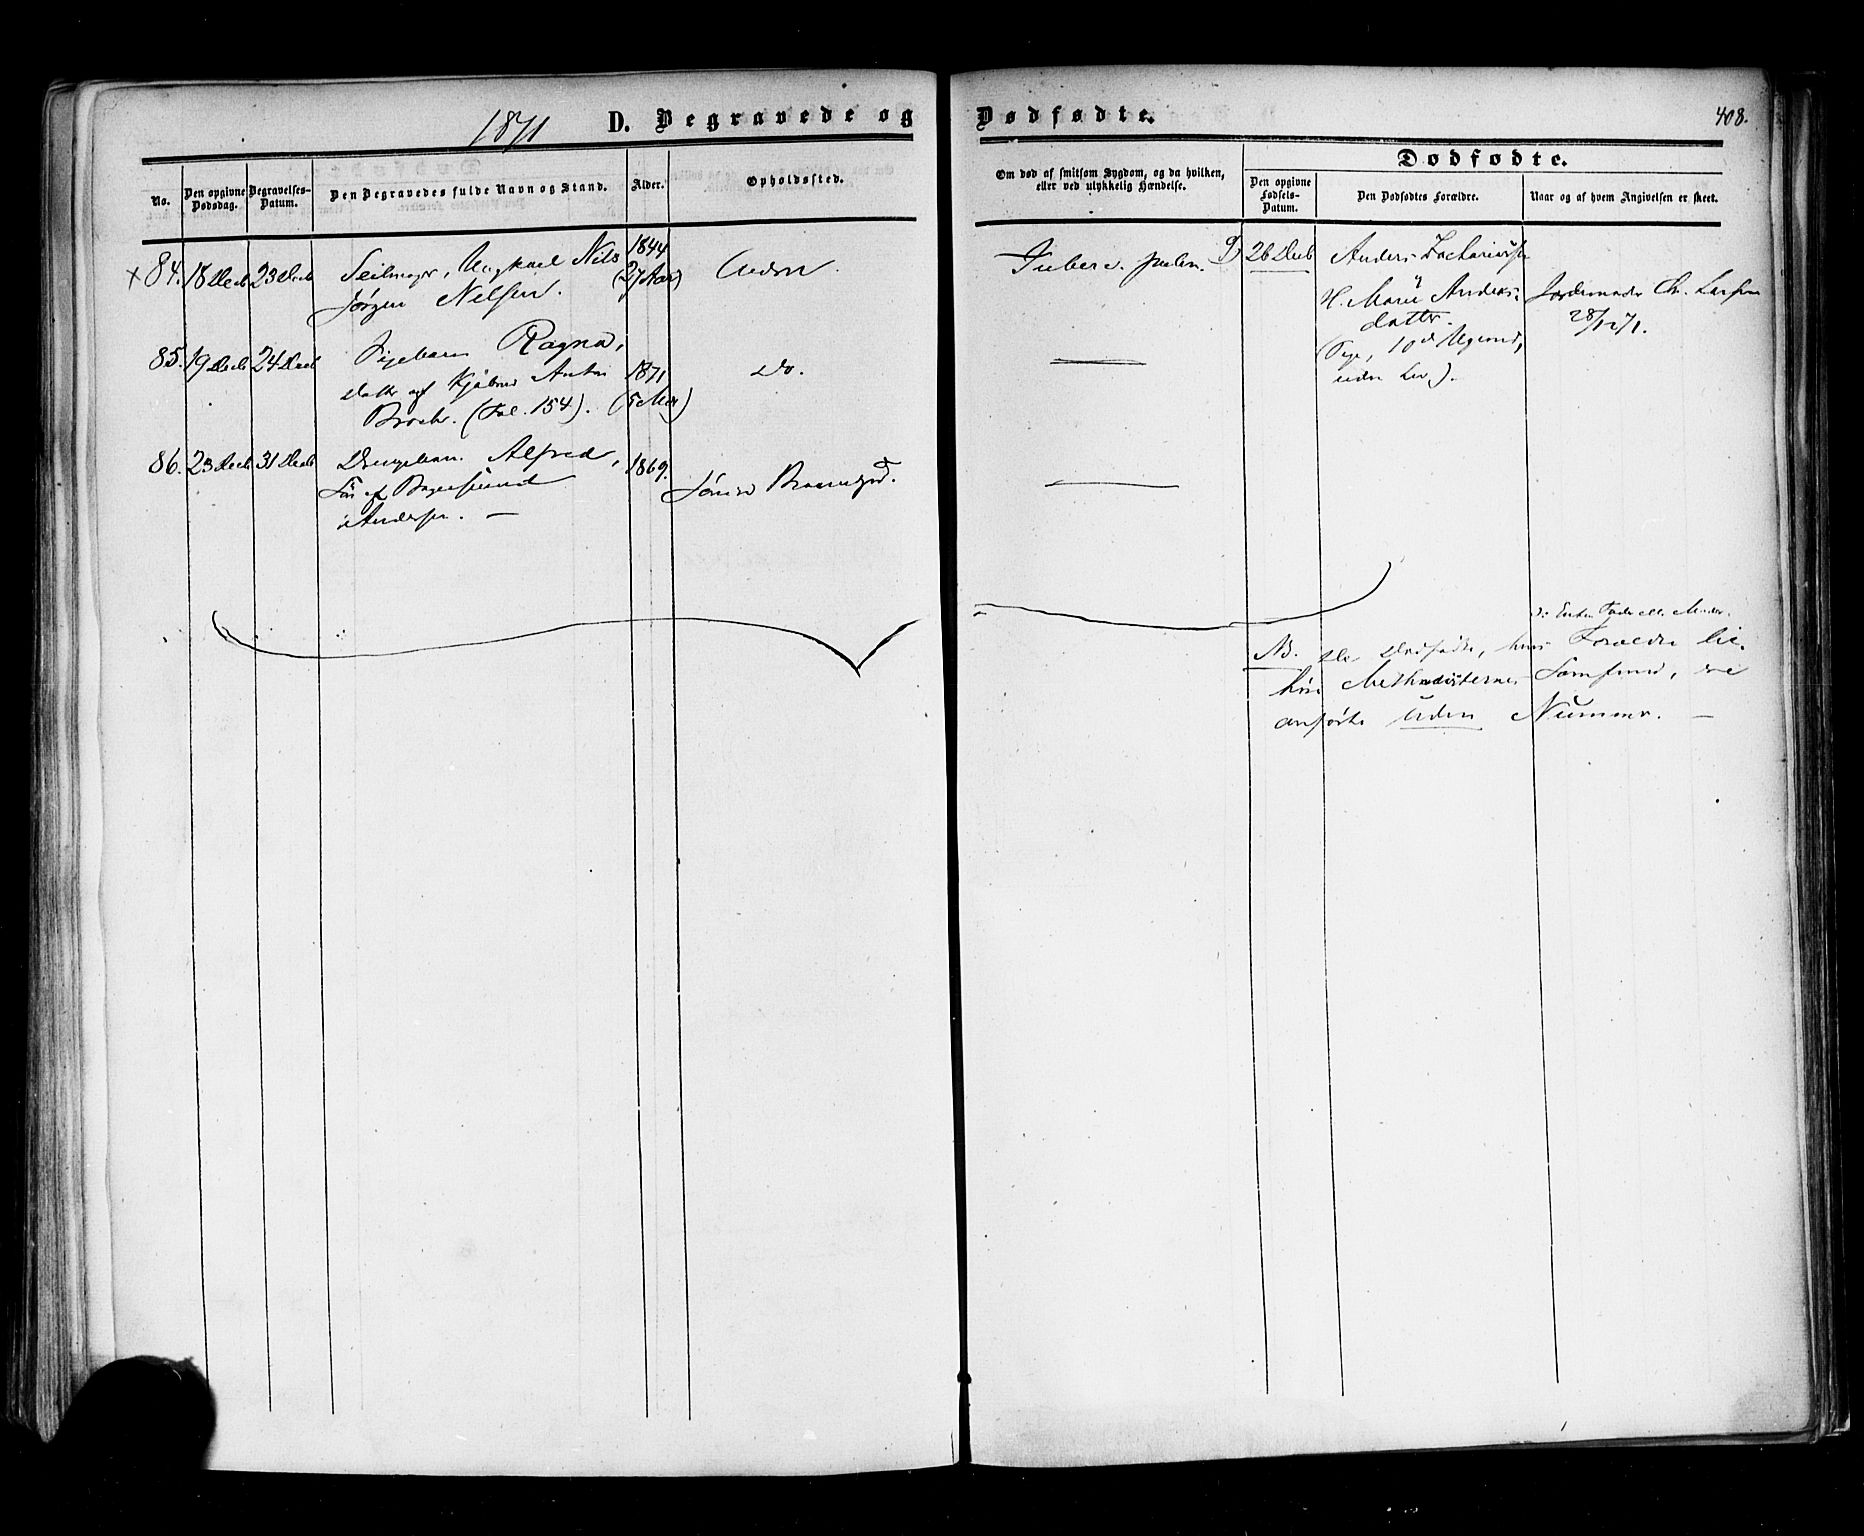 1871
D. Begravede og Dødfødte.
408.
No.
Den opgivne Dødsdag.
Begravelses-Datum.
Den Begravedes fulde Navn og Stand.
Alder.
Opholdssted.
Om død af smitsom Sygdom, og da hvilken,
eller ved ulykkelig Hændelse.
Dødfødte.
Den opgivne Fødsels-Datum.
Den Dødfødtes Forældre.
Naar og af hvem Angivelsen er skeet.
× 84. 18 Decb 23 Decb Seilmager, Ungkarl Nils 1844
Jørgen Nilsen. (27 Aar)
Tuberc. pulm.
9) 26 Decb Anders Zachariassen
H. Marie Anders-
datter.
(Pige, 10de Ugebund,
uden Liv).
Jordemoder Ch. Larsen
28/12 71.
85. 19 Decb 24 Decb Pigebarn Ragna,
Datter af Kjøbmd Anton 1871 Do.
Broch. (Fol. 154). (5 Mdr)
86. 23 Decb 31 Decb Drengebarn Alfred, 1869.
Søn af
Andersen. —
: Enten Fader eller Moder.
NB. De Dødfødte, hvis Forældre
Methodisternes Samfund, ere
anførte uden Nummer. —